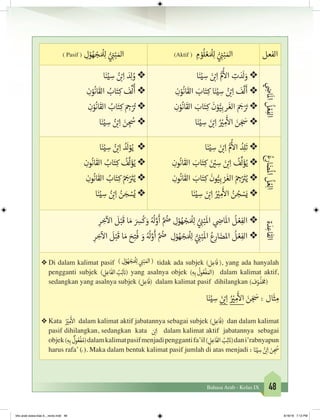 الفعل
(Aktif ) المَبْنِيُّ لِلْمَعْلُوْمِ
( Pasif ) المَبْنِيُّ لِلْمَجْهُوْلِ
الفِعْلُ المَاضِي
❖ وَلَدَتِ الأُمُّ ابْنَ سِيْنَا
❖ أَلَّفَ ابْنُ سِيْنَا كِتَابَ القَانُوْنِ
❖ تَرْجَمَ الغَرْبِيُّوْنَ كِتَابَ القَانُوْنِ
❖ سَجَنَ الأَمِيْرُ ابْنَ سِيْنَا
❖ وُلِدَ ابْنُ سِيْنَا
❖ أُلِّفَ كِتَابُ القَانُوْنِ
❖ تُرْجِمَ كِتَابُ القَانُوْنِ
❖ سُجِنَ ابْنُ سِيْنَا
الفِعْلُ المُضَارِعُ
❖ تَلِدُ الأُمُّ ابْنَ سِيْنَا
❖ يُؤَلِّفُ ابْنُ سِيْنَ كِتَابَ القَانُونِ
❖ يُتَرْجِمُ الغَرْبِيُّوْنَ كِتَابَ القَانُونِ
❖ يَسْجُنُ الأَمِيْرُ ابْنَ سِيْنَا
❖ يُوْلَدُ ابْنُ سِيْنَا
❖ يُؤَلَّفُ كِتَابُ القَانُونِ
❖ يُتَرْجَمُ كِتَابُ القَانُونِ
❖ يُسْجَنُ ابْنُ سِيْنَا
القَاعِدَةُ
❖ الفِعْلُ المَاضِي المَبْنِيُّ لِلْمَجْهُوْلِ ضُمَّ أَوَّلُهُ وَكُسِرَ مَا قَبْلَ الآخِرِ
❖ الفِعْلُ المُضَارِعُ المَبْنِيُّ لِلْمَجْهُوْلِ ضُمَّ أَوَّلُهُ وَ فُتِحَ مَا قَبْلَ الآخِرِ
❖ Di dalam kalimat pasif (المَبْنِيُّ لِلْمَجْهُوْلِ) tidak ada subjek (فَاعِل), yang ada hanyalah
pengganti subjek (نَائِبُ الفَاعِلِ) yang asalnya objek (المَفْعُوْلُ بِهِ) dalam kalimat aktif,
sedangkan yang asalnya subjek (فَاعِل) dalam kalimat pasif dihilangkan (مَحْذُوْف)
مِثَال : سَجَنَ الأَمِيْرُ ابْنَ سِيْنَا
❖ Kata الأَمِيْرُ dalam kalimat aktif jabatannya sebagai subjek (فَاعِل) dan dalam kalimat
pasif dihilangkan, sedangkan kata ابْنَ dalam kalimat aktif jabatannya sebagai
objek (المَفْعُوْلُ بِهِ) dalam kalimat pasif menjadi pengganti fa'il (نَائِبُ الفَاعِلِ) dan i'rabnyapun
harus rafa' (ُ). Maka dalam bentuk kalimat pasif jumlah di atas menjadi : سُجِنَ ابْنُ سِيْنَا
Bahasa Arab - Kelas IX 48